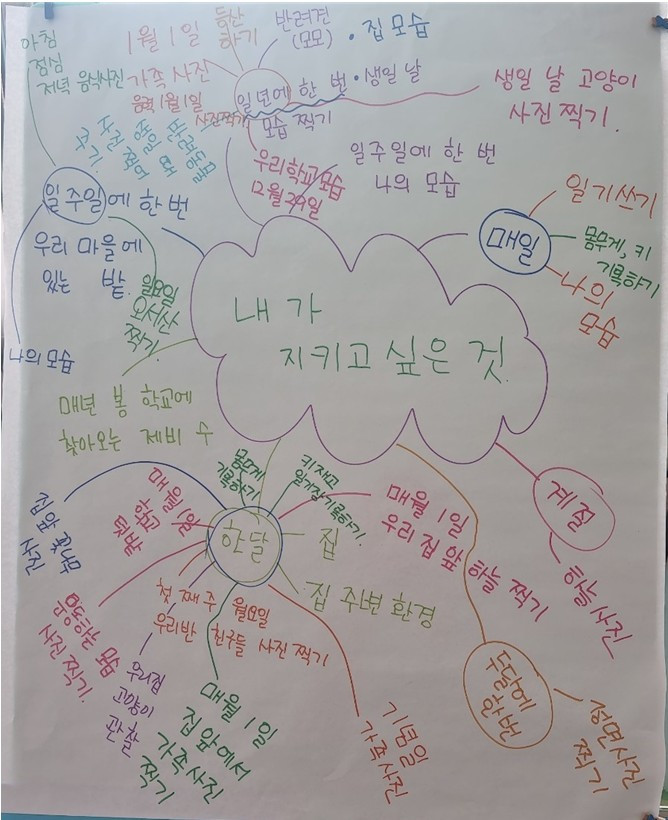 아침
점심
저녁 음식사진
1월 1일
가족 사진
음력 1월 1일
사진찍기
등산
하기
반려견
(모모)
• 집 모습
일년에 한 번
• 생일 날
모습 찍기
생일 날 고양이
사진 찍기.
우리 학교 모습
12월 29일
일주일에 한 번
나의 모습
일주일에 한 번
우리 마을에
있는 밭
나의 모습
월요일
오서산
찍기.
매일
일기쓰기
몸무게, 키
기록하기
나의
모습
내가
지키고 싶은 것.
매년 봄 학교에
찾아오는 제비 수
한달
몸무게
기록하기
키재고
일기장기록하기.
매월 1일
우리 집 앞 하늘 찍기
집
집 주변 환경
매월 1일
학교
텃밭
집 앞 꽃나무
사진
운동하는 모습
사진 찍기.
우리집
고양이
관찰
첫 째 주 월요일
우리반 친구들 사진 찍기
매월 1일
집 앞에서
가족사진
찍기
기념일
가족사진
계절
하늘 사진
두달에
한번
정면사진
찍기